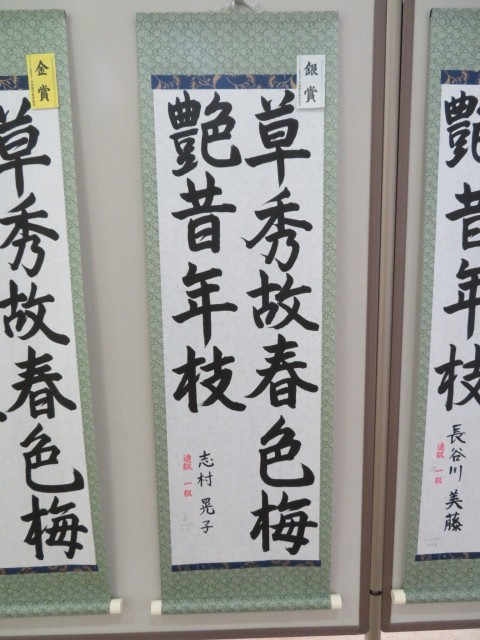 銀賞
草秀故春色梅
艶昔年枝
志村晃子
速駸 一級
金賞
草秀故春色梅
艶昔年枝
長谷川美藤
速駸 一級